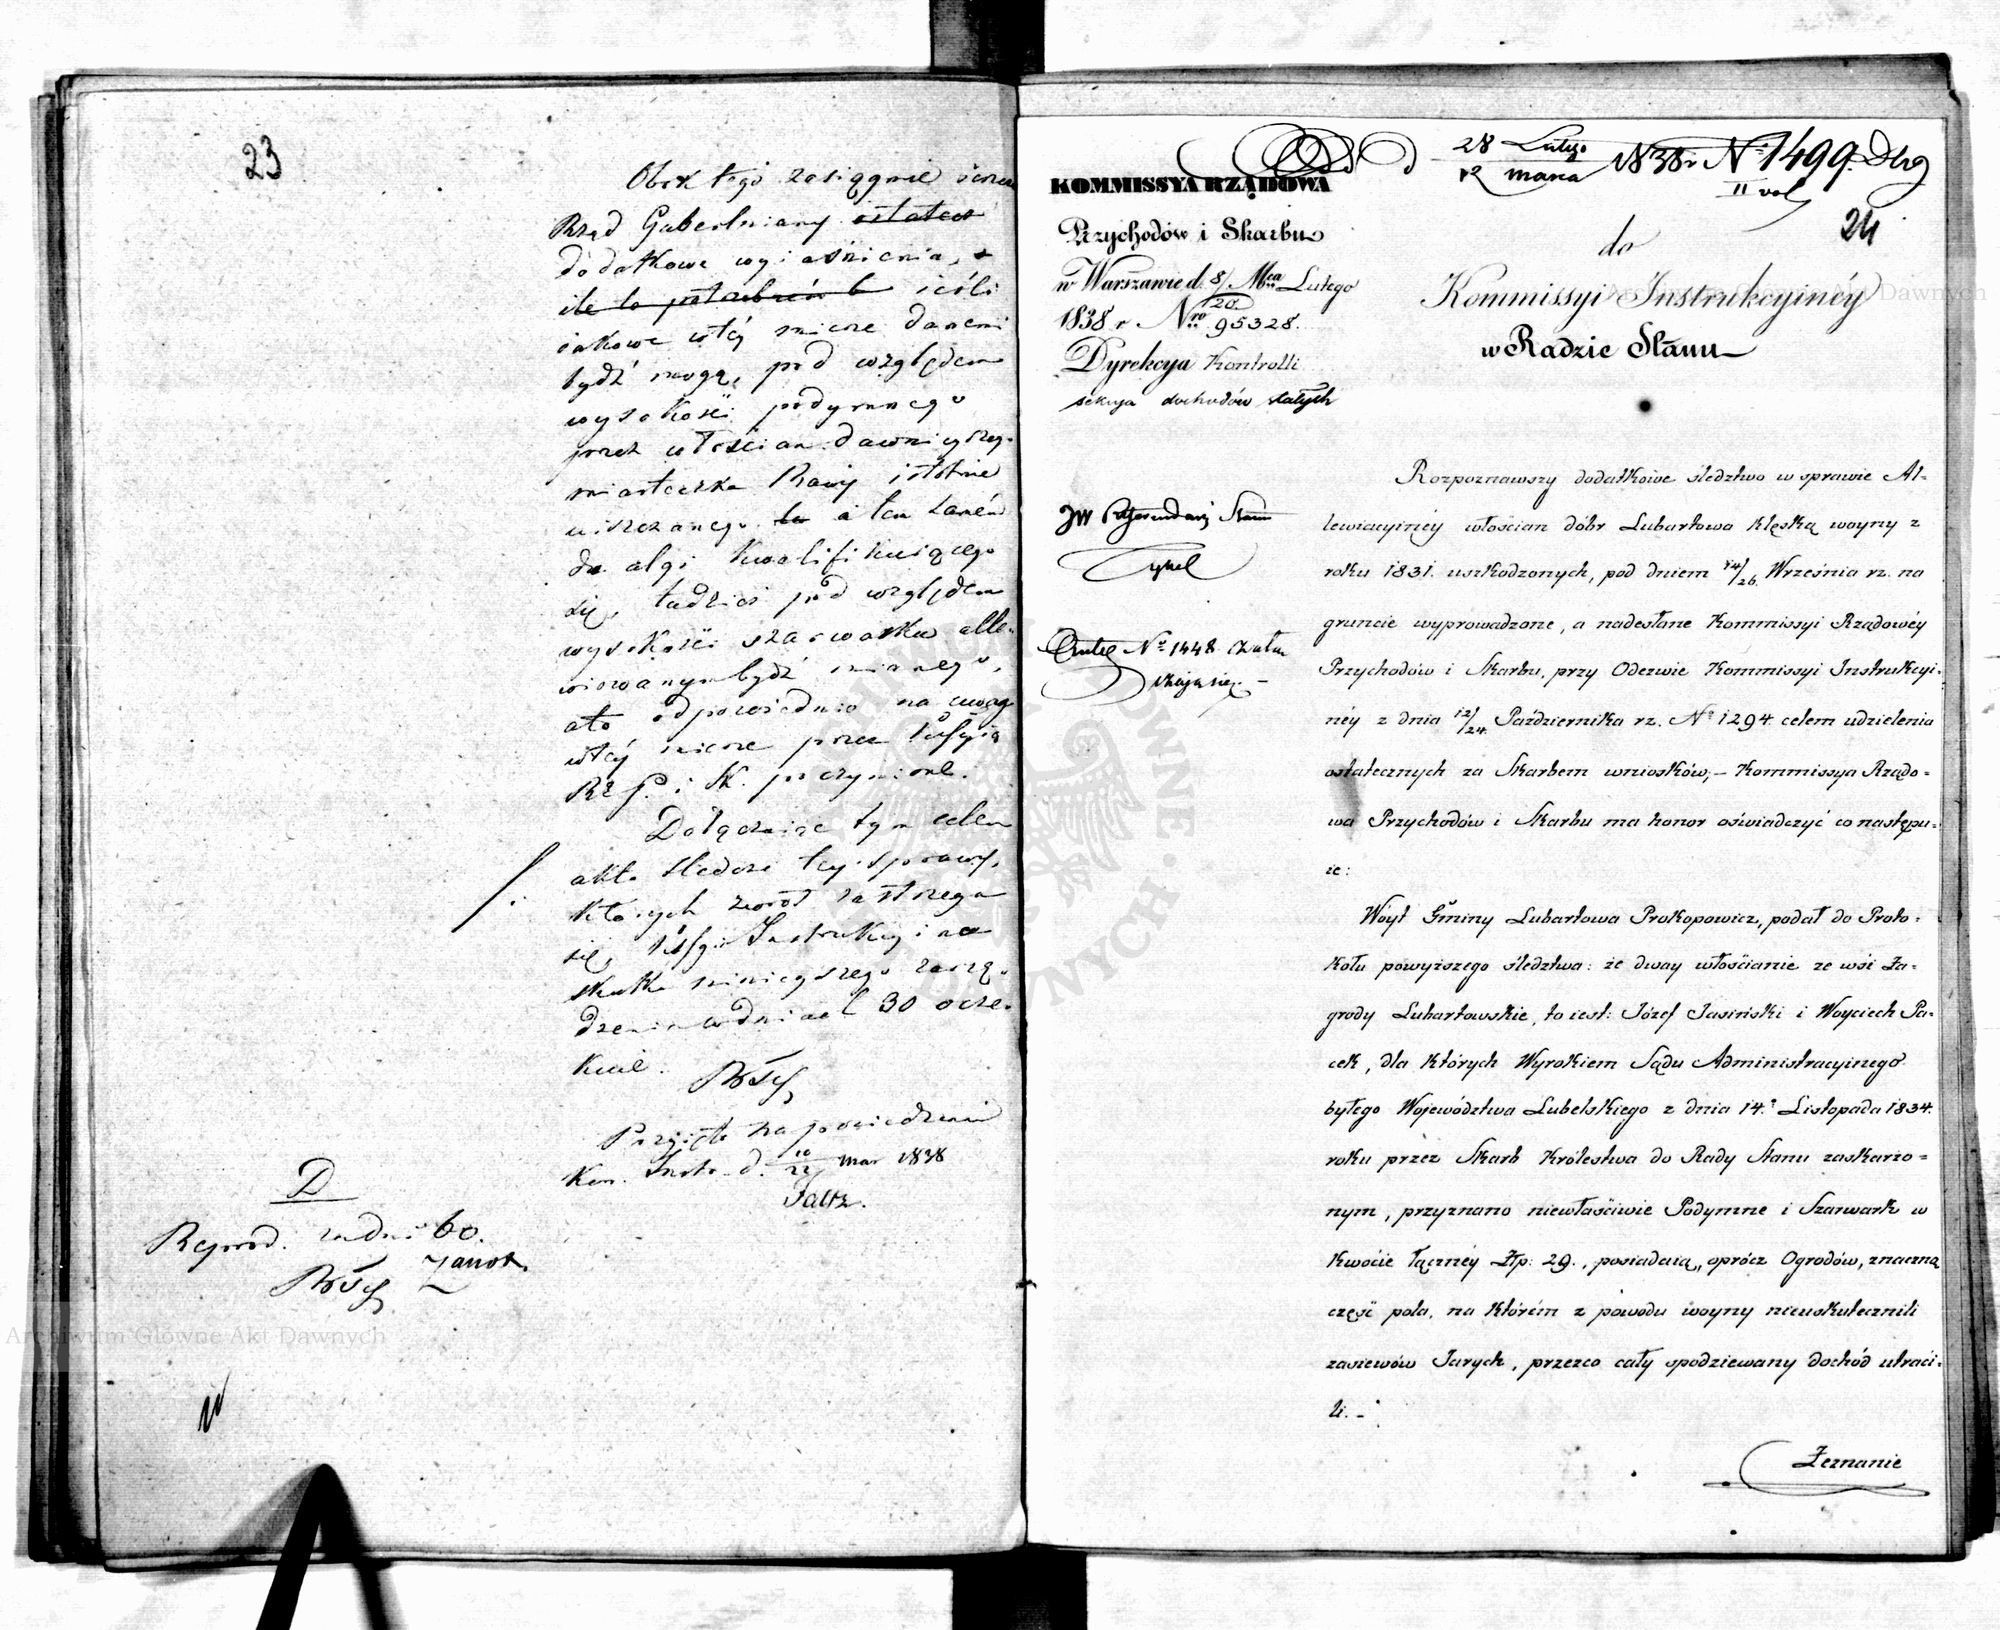 23
Obok tego zasiągnie
Rząd Gubernialny
dodatkowe wyiaśnienia,
ile to potrzebném b ieśli
iakowe w téy mierze danemi
bydź mogą, pod względem
wysokości podymnego
przez włościan dawnieyszego
miasteczka Rawy istotnie
uiszczanego a tém samém
do ulgi kwalifikuiącego
się, tudzież pod względem
wysokości szarwarku alle-
wiowanym bydź mianego,
a to odpowiednio na uwag
w téy mierze przez
Rz. P. i Sk. poczynione.
Dołączaiąc tym celem
akta śledcze téy sprawy,
których zwrot zastrzega
się, Instrukcyina
skutku ninieyszego zarzą-
dzenia w dniach 30 ocze-
kuie.
Przyięto na posiedzeniu
Kom. Instr. d. 10/22 Mar 1838
D
Reprod. za dni 60.
Archiwum Główne Akt Dawnych
KOMMISSYA RZĄDOWA
Przychodów i Skarbu
w Warszawie d. 8/20 Mca Lutego
1838 r. Nro 95328.
Dyrekcya Kontrolli
sekcya dochodów stałych
JW Referendarz Stanu
N° 1448
28 Lutego
12 marca 1838 r N° 1499.
II vol
24
do
Kommissyi Instrukcyinéy
w Radzie Stanu
Archiwum Główne Akt Dawnych
Rozpoznawszy dodatkowe śledztwo w sprawie Al-
lewiacyinéy włościan dóbr Lubartowa klęską woyny z
roku 1831. uszkodzonych, pod dniem 14/26. Września rz. na
gruncie wyprowadzone, a nadesłane Kommissyi Rządowéy
Przychodów i Skarbu, przy Odezwie Kommissyi Instrukcyi-
néy z dnia 12/24. Października rz. N° 1294. celem udzielenia
ostatecznych za Skarbem wniosków; – Kommissya Rządo-
wa Przychodów i Skarbu ma honor oświadczyć co następu-
ie:
Woyt Gminy Lubartowa Prokopowicz, podał do Proto-
kołu powyższego śledztwa: że dway włościanie ze wsi Za-
grody Lubartowskie, to iest: Józef Jasiński i Woyciech Pa-
cek, dla których Wyrokiem Sądu Administracyinego
byłego Województwa Lubelskiego z dnia 14.° Listopada 1834.
roku przez Skarb Królestwa do Rady Stanu zaskarżo-
nym, przyznano niewłaściwie Podymne i Szarwark w
kwocie łącznéy Złp: 29., posiadaią, oprócz Ogrodów, znaczną
część pola, na którém z powodu woyny nieuskutecznili
zasiewów Jarych, przezco cały spodziewany dochód utraci-
li. –
Zeznanie